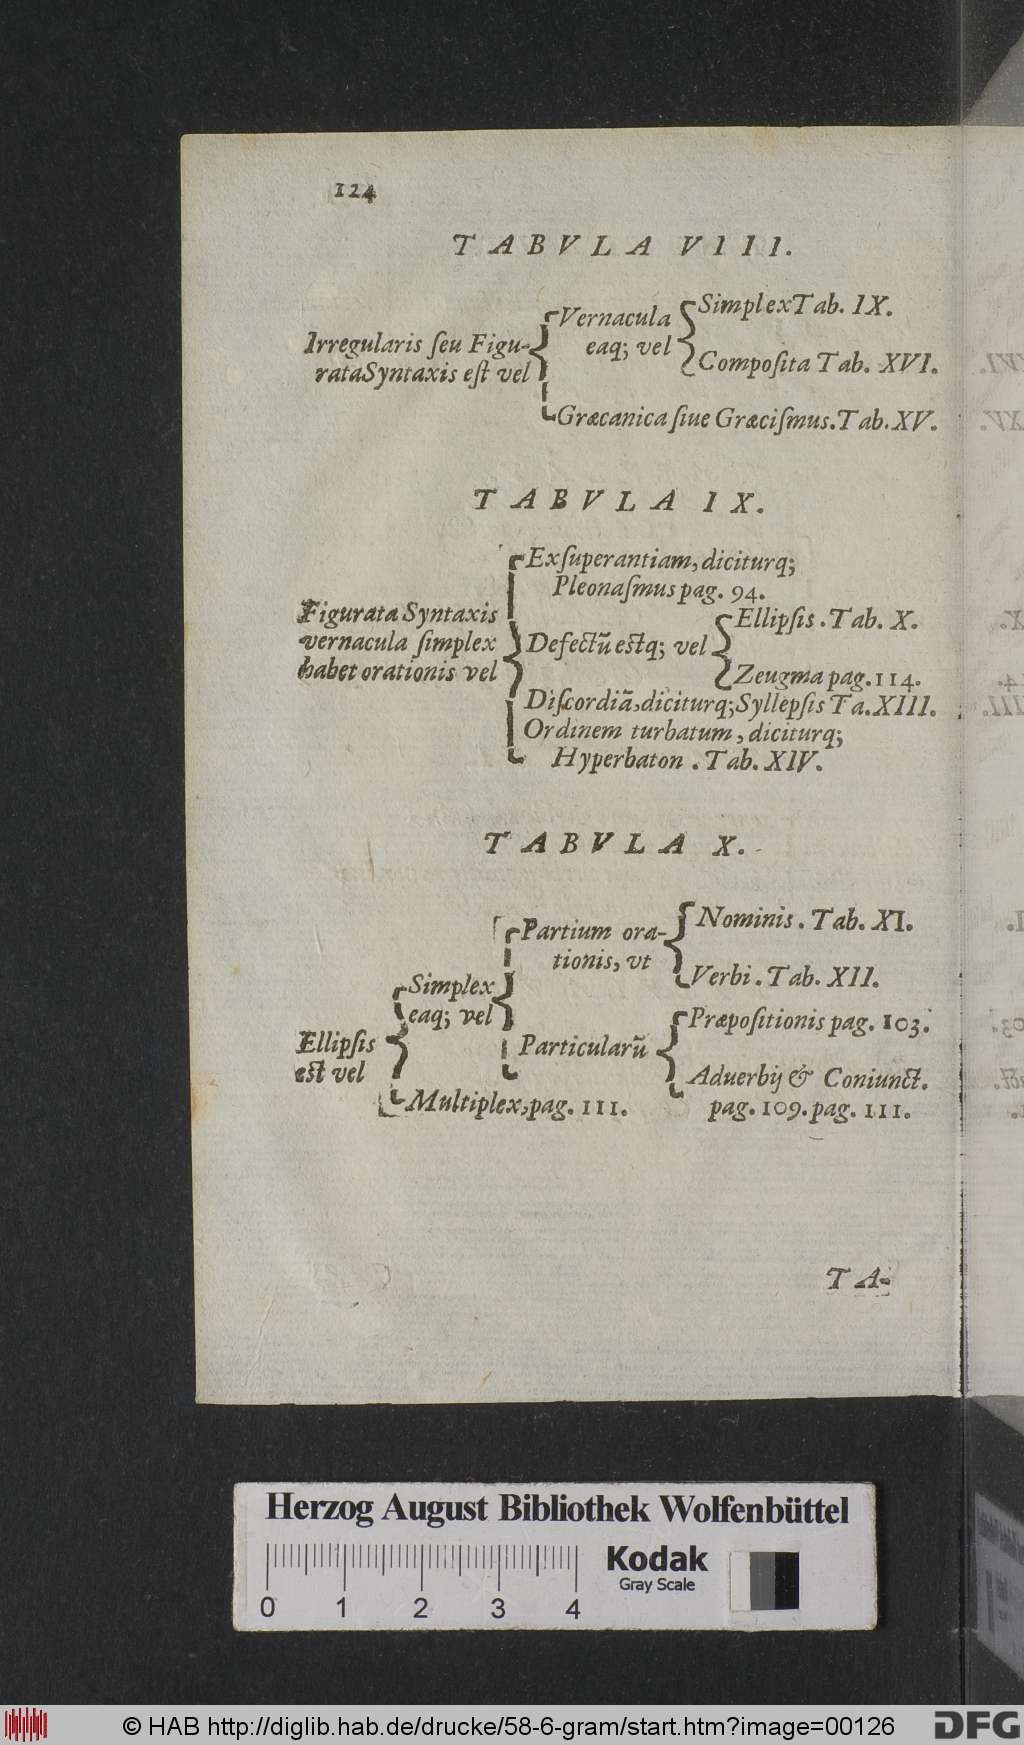 124
TABVLA VIII.
Irregularis ſeu Figu-
rata Syntaxis eſt vel
Vernacula
eaq; vel
Simplex Tab. IX.
Compoſita Tab. XVI.
Græcanica ſiue Græciſmus. Tab. XV.
TABVLA IX.
Figurata Syntaxis
vernacula ſimplex
habet orationis vel
Exſuperantiam, diciturq;
Pleonaſmus pag. 94.
Defectũ eſtq; vel
Ellipſis. Tab. X.
Zeugma pag. 114.
Diſcordiã, diciturq; Syllepſis Ta. XIII.
Ordinem turbatum, diciturq;
Hyperbaton. Tab. XIV.
TABVLA X.
Ellipſis
eſt vel
Simplex
eaq; vel
Partium ora-
tionis, vt
Nominis. Tab. XI.
Verbi. Tab. XII.
Particularũ
Præpoſitionis pag. 103.
Aduerbij & Coniunct.
pag. 109. pag. 111.
Multiplex, pag. 111.
TA-
Herzog August Bibliothek Wolfenbüttel
0 1 2 3 4
Kodak
Gray Scale
© HAB http://diglib.hab.de/drucke/58-6-gram/start.htm?image=00126
DFG